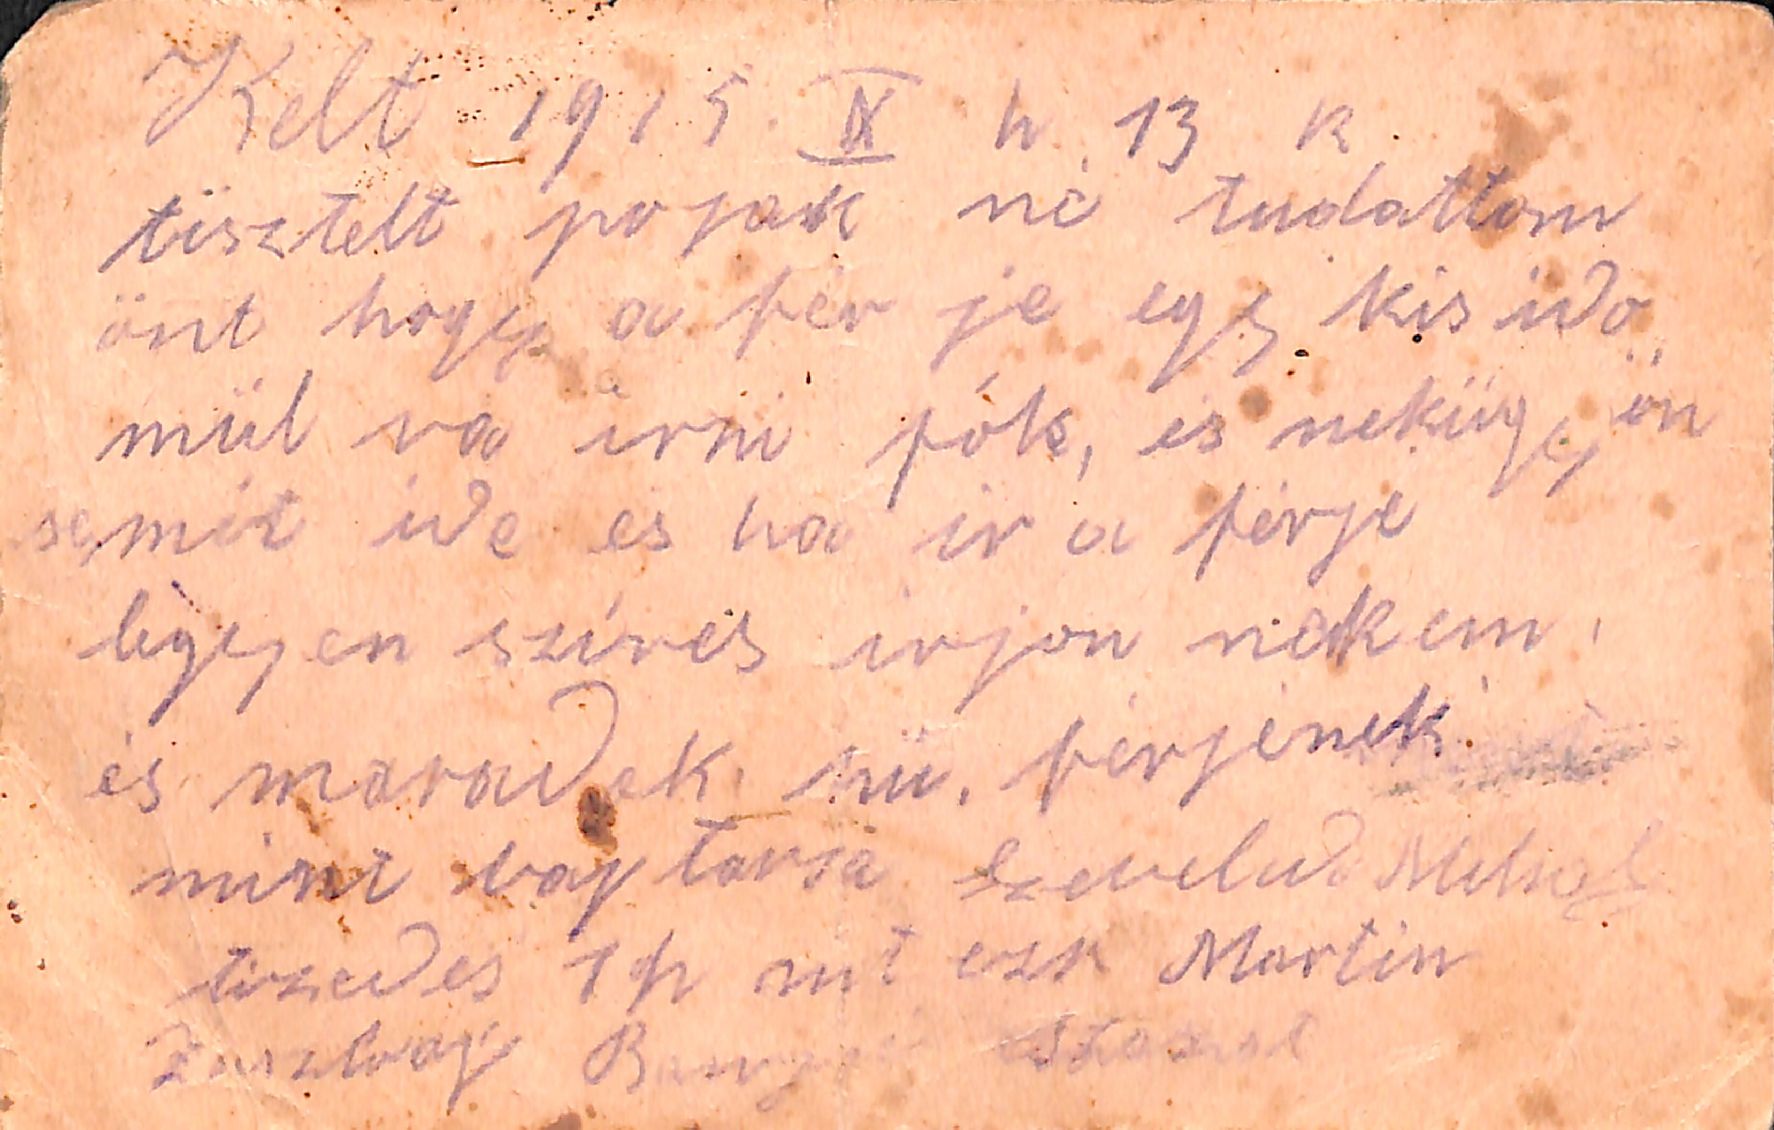 Kelt 1915 IX h. 13 k
tisztelt pojak né tudattom
önt hogy a fér je egy kis idö
mül va irni fók, es neküggyön
semit ide es ha ir a férje
legyen szíves irjon nekem,
és maradok hü. férjének
mint bajtarsa
tizedes 19 Martin